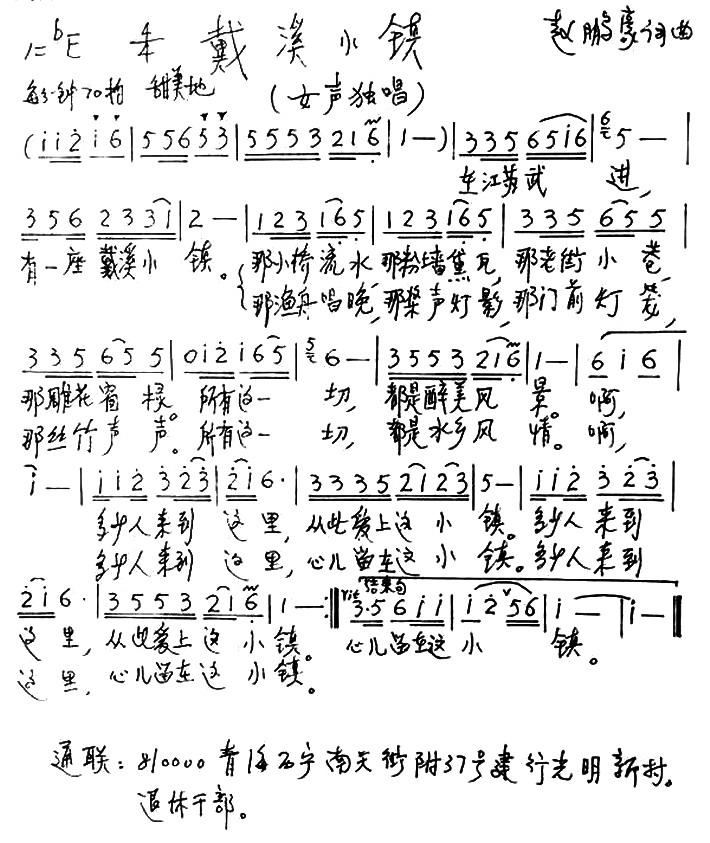 1=♭E 2/4 戴溪小镇 赵鹏豪词曲
每分钟70拍 甜美地 (女声独唱)
(i̇ i̇ 2̇ i̇ 6 | 5 5 6 5 3 | 5 5 5 3 2 1 6̣ | 1 —) | 3 3 5 6 5 i̇ 6 | 5 — |
在江苏武 进,
3 5 6 2 3 3 1 | 2 — | 1 2 3 1 6̣ 5̣ | 1 2 3 1 6̣ 5̣ | 3 3 5 6 5 5 |
有一座 戴溪小 镇。 那小桥流水,那粉墙黛瓦,那老街小巷,
那渔舟唱晚,那桨声灯影,那门前灯笼,
3 3 5 6 5 5 | 0 i̇ 2̇ i̇ 6 5 | 6 — | 3 5 5 3 2 1 6̣ | 1 — | 6 i̇ 6 |
那雕花窗棂。所有这一 切, 都是醉美风 景。 啊,
那丝竹声 声。所有这一 切, 都是水乡风 情。 啊,
i̇ — | i̇ i̇ 2̇ 3̇ 2̇ 3̇ | 2̇ i̇ 6 · | 3 3 3 5 2 1 2 3 | 5 — | i̇ i̇ 2̇ 3̇ 2̇ 3̇ |
多少人来到 这里, 从此爱上这 小 镇。多少人 来到
多少人来到 这里, 心儿留在这 小 镇。多少人 来到
2̇ i̇ 6 · | 3 5 5 3 2 1 6̣ | 1 — :‖ rit 结束句 3·5 6 i̇ i̇ | i̇ 2̇ 5 6 | i̇ — | i̇ — ‖
这 里, 从此爱上 这 小镇。 心儿留在这 小 镇。
这 里, 心儿留在这 小镇。
通联:810000青海西宁南大街附37号建行光明新村。
退休干部。